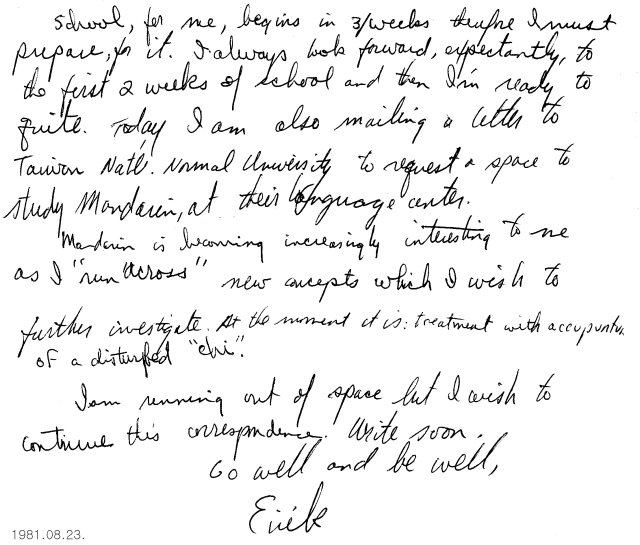 School, for me, begins in 3/weeks therefore I must
prepare, for it. I always look forward, expectantly, to
the first 2 weeks of school and then I'm ready to
quite. Today I am also mailing a letter to
Taiwan Nat'l. Normal University to request a space to
study Mandarin, at their language center.
Mandarin is becoming increasingly interesting to me
as I "run across" new concepts which I wish to
further investigate. At the moment it is: treatment with accupuntur
of a disturbed "chi".
I am running out of space but I wish to
continue this correspondence. Write soon.
Go well and be well,
1981.08.23.